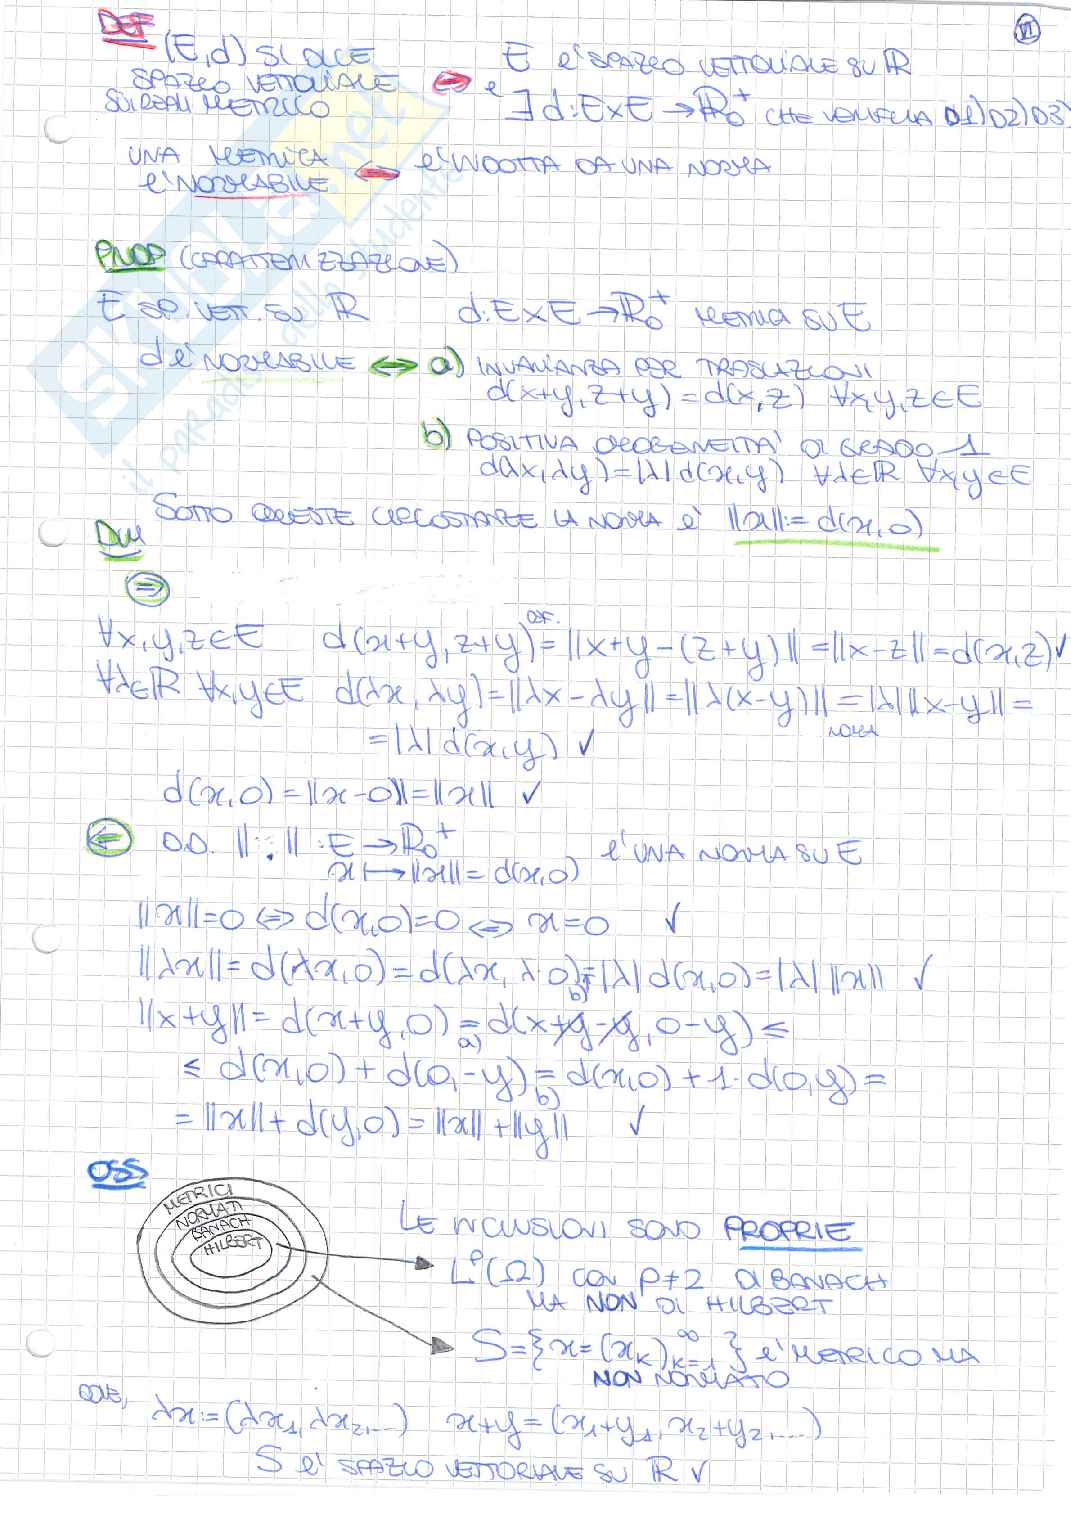 VI
DEF
(E,d) SI DICE
SPAZIO VETTORIALE
SUI REALI METRICO
⇔
E è SPAZIO VETTORIALE SU ℝ
e
∃ d: E×E → ℝ₀⁺ CHE VERIFICA D1) D2) D3)
UNA METRICA
è NORMABILE
⇔ è INDOTTA DA UNA NORMA
PROP (CARATTERIZZAZIONE)
E SP. VETT. SU ℝ d: E×E → ℝ₀⁺ METRICA SU E
d è NORMABILE ⇔ a) INVARIANZA PER TRASLAZIONI
d(x+y, z+y) = d(x,z) ∀x,y,z∈E
b) POSITIVA OMOGENEITÀ DI GRADO 1
d(λx, λy) = |λ| d(x,y) ∀λ∈ℝ ∀x,y∈E
SOTTO QUESTE CIRCOSTANZE LA NORMA è ||x|| := d(x,0)
DIM
⇒
∀x,y,z∈E d(x+y, z+y) =DEF. ||x+y-(z+y)|| = ||x-z|| = d(x,z) ✓
∀λ∈ℝ ∀x,y∈E d(λx, λy) = ||λx-λy|| = ||λ(x-y)|| = |λ| ||x-y|| =
NORMA
= |λ| d(x,y) ✓
d(x,0) = ||x-0|| = ||x|| ✓
⇐ D.D. ||·|| : E → ℝ₀⁺ è UNA NORMA SU E
x ↦ ||x|| = d(x,0)
||x|| = 0 ⇔ d(x,0) = 0 ⇔ x = 0 ✓
||λx|| = d(λx,0) = d(λx, λ·0) =b) |λ| d(x,0) = |λ| ||x|| ✓
||x+y|| = d(x+y,0) =a) d(x+y-y, 0-y) ≤
≤ d(x,0) + d(0,-y) =b) d(x,0) + 1·d(0,y) =
= ||x|| + d(y,0) = ||x|| + ||y|| ✓
OSS
METRICI
NORMATI
BANACH
HILBERT
LE INCLUSIONI SONO PROPRIE
Lᵖ(Ω) CON p≠2 DI BANACH
MA NON DI HILBERT
S = {x = (xₖ)ₖ₌₁^∞} è METRICO MA
NON NORMATO
DOVE, λx := (λx₁, λx₂, ...) x+y = (x₁+y₁, x₂+y₂, ...)
S è SPAZIO VETTORIALE SU ℝ ✓